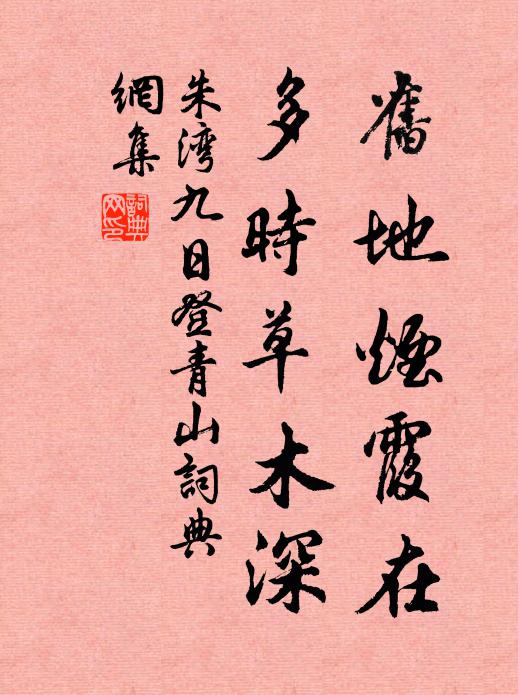 舊地煙霞在
多時草木深
朱湾九日登青山詞典
網集
詞典网印